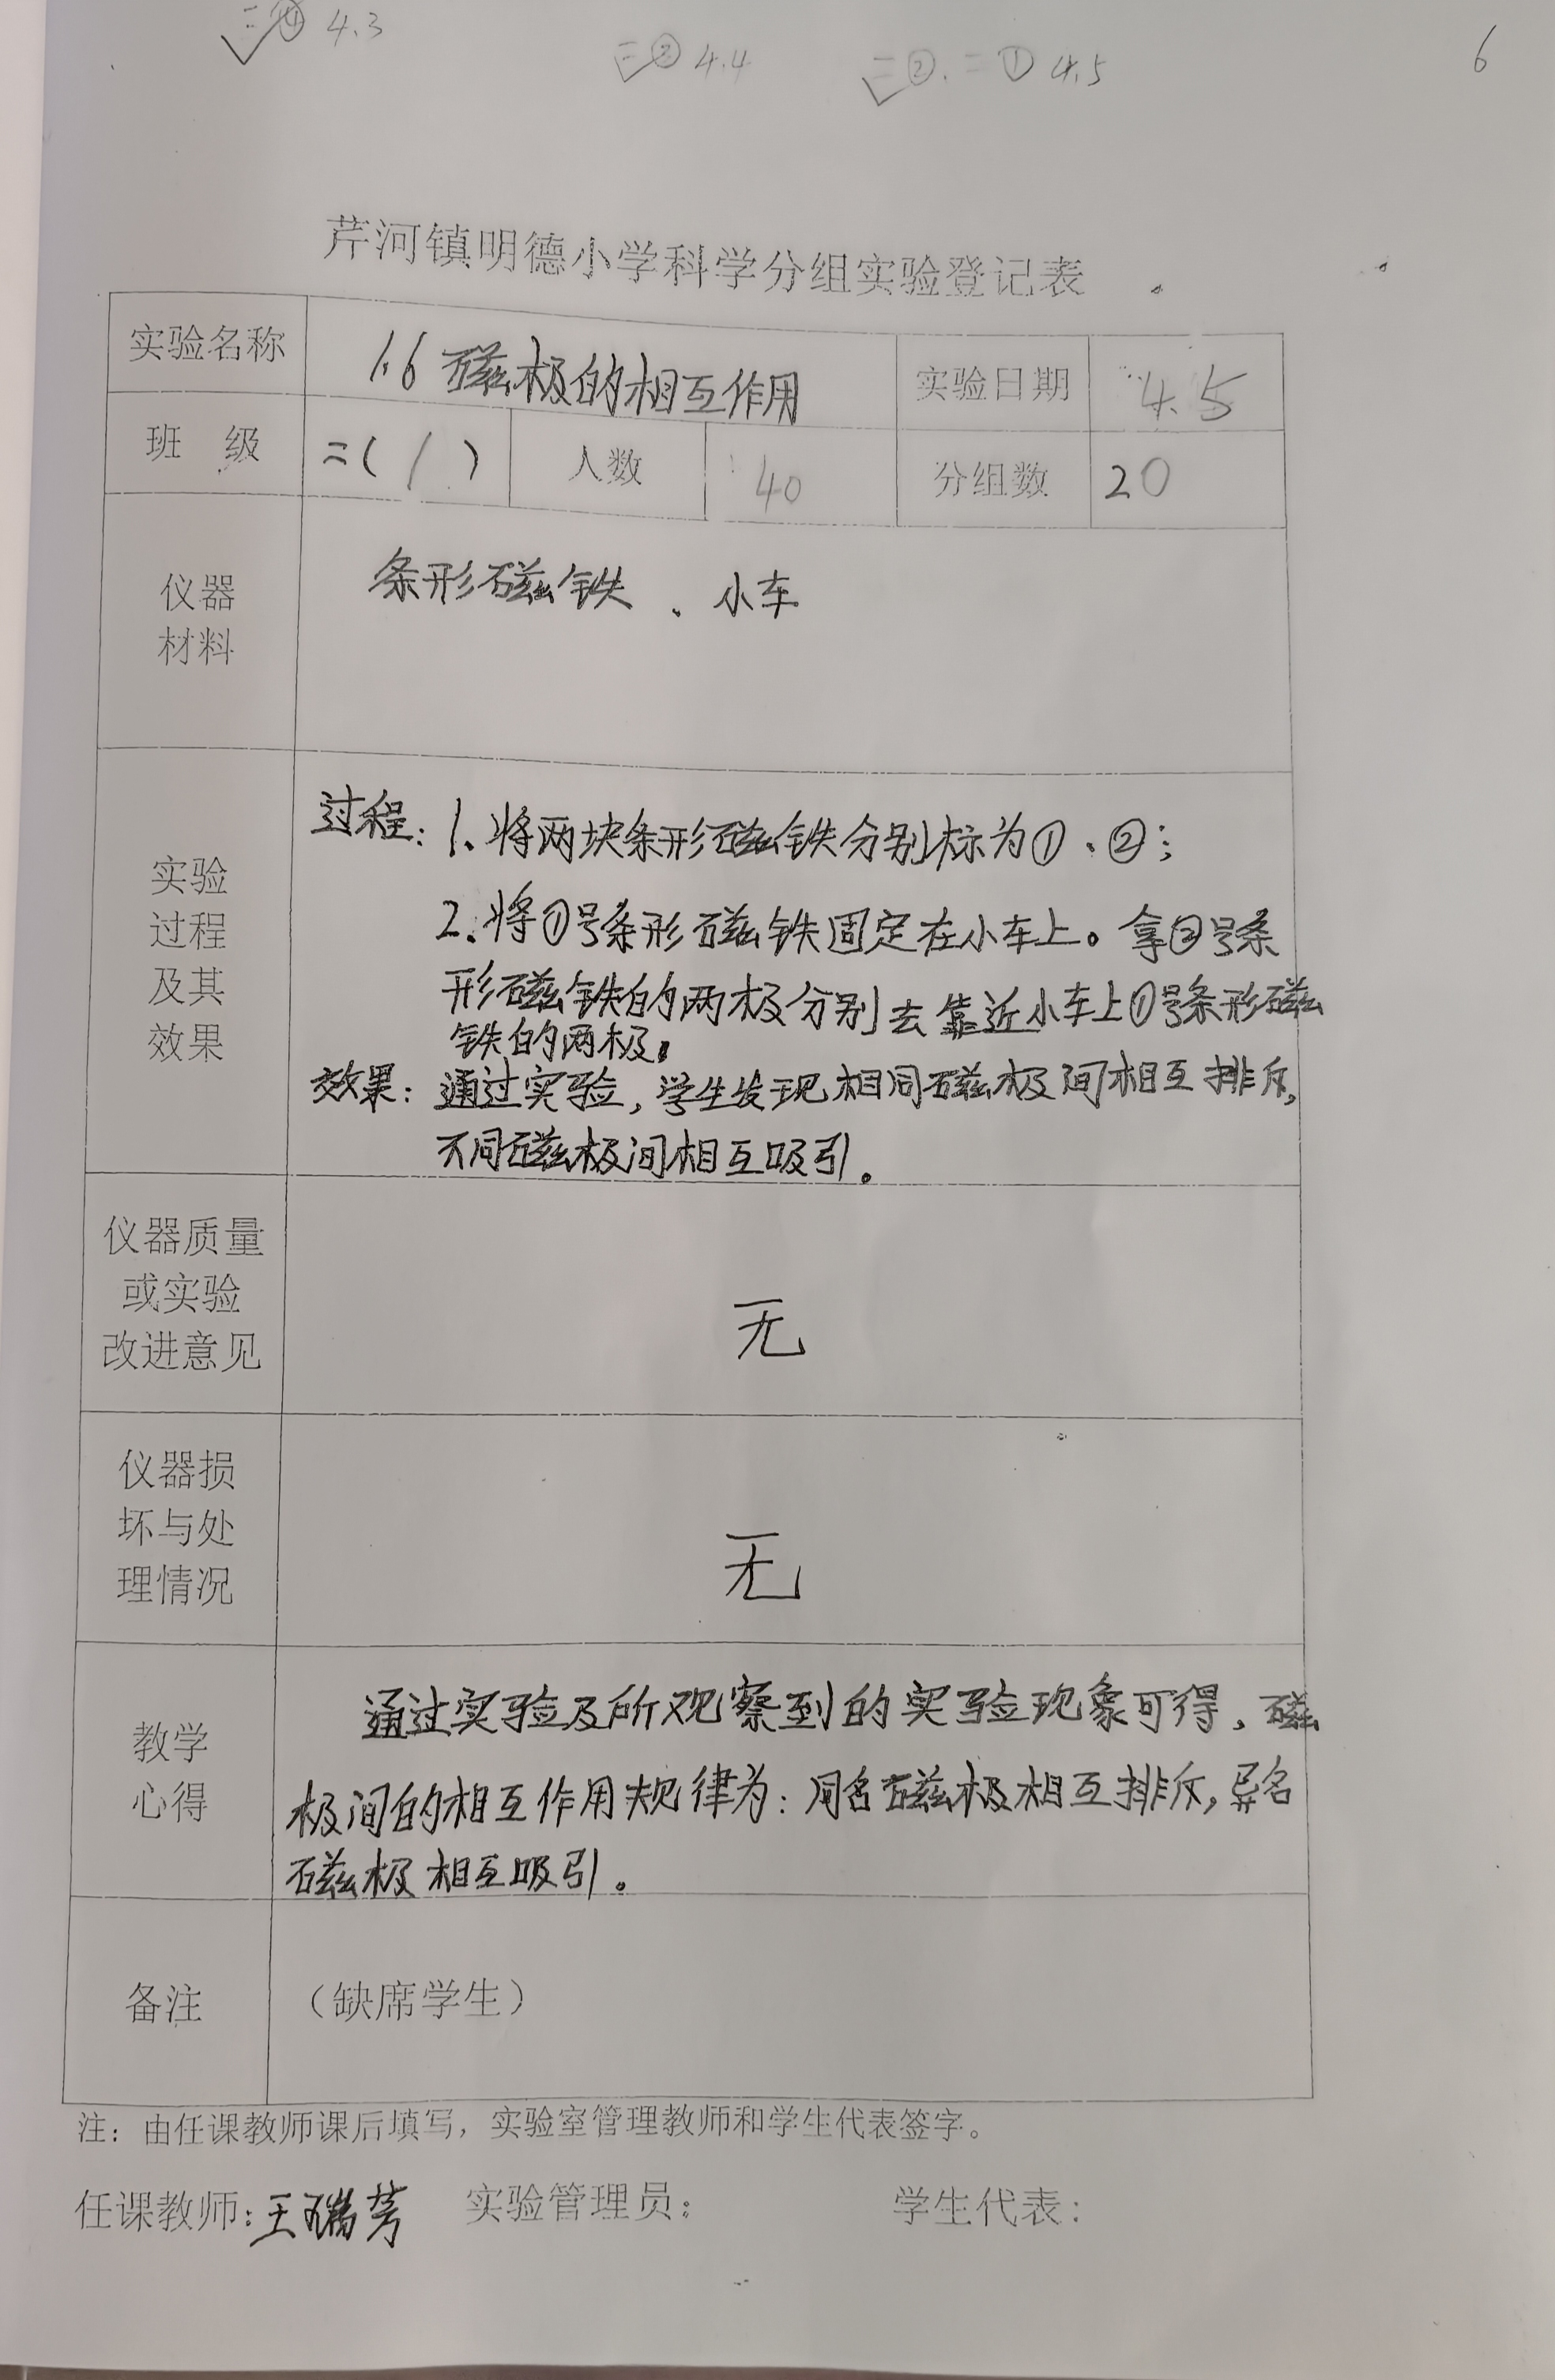 二④ 4.3
二③ 4.4
二②. 二① 4.5
6
芹河镇明德小学科学分组实验登记表
实验名称 1.6 磁极的相互作用 实验日期 4.5
班 级 二(1) 人数 40 分组数 20
仪器
材料
条形磁铁、小车
实验
过程
及其
效果
过程: 1. 将两块条形磁铁分别标为①、②;
2. 将①号条形磁铁固定在小车上。拿②号条
形磁铁的两极分别去靠近小车上①号条形磁
铁的两极。
效果: 通过实验, 学生发现相同磁极间相互排斥,
不同磁极间相互吸引。
仪器质量
或实验
改进意见
无
仪器损
坏与处
理情况
无
教学
心得
通过实验及所观察到的实验现象可得, 磁
极间的相互作用规律为: 同名磁极相互排斥, 异名
磁极相互吸引。
备注 (缺席学生)
注: 由任课教师课后填写, 实验室管理教师和学生代表签字。
任课教师: 王瑞芳 实验管理员: 学生代表: